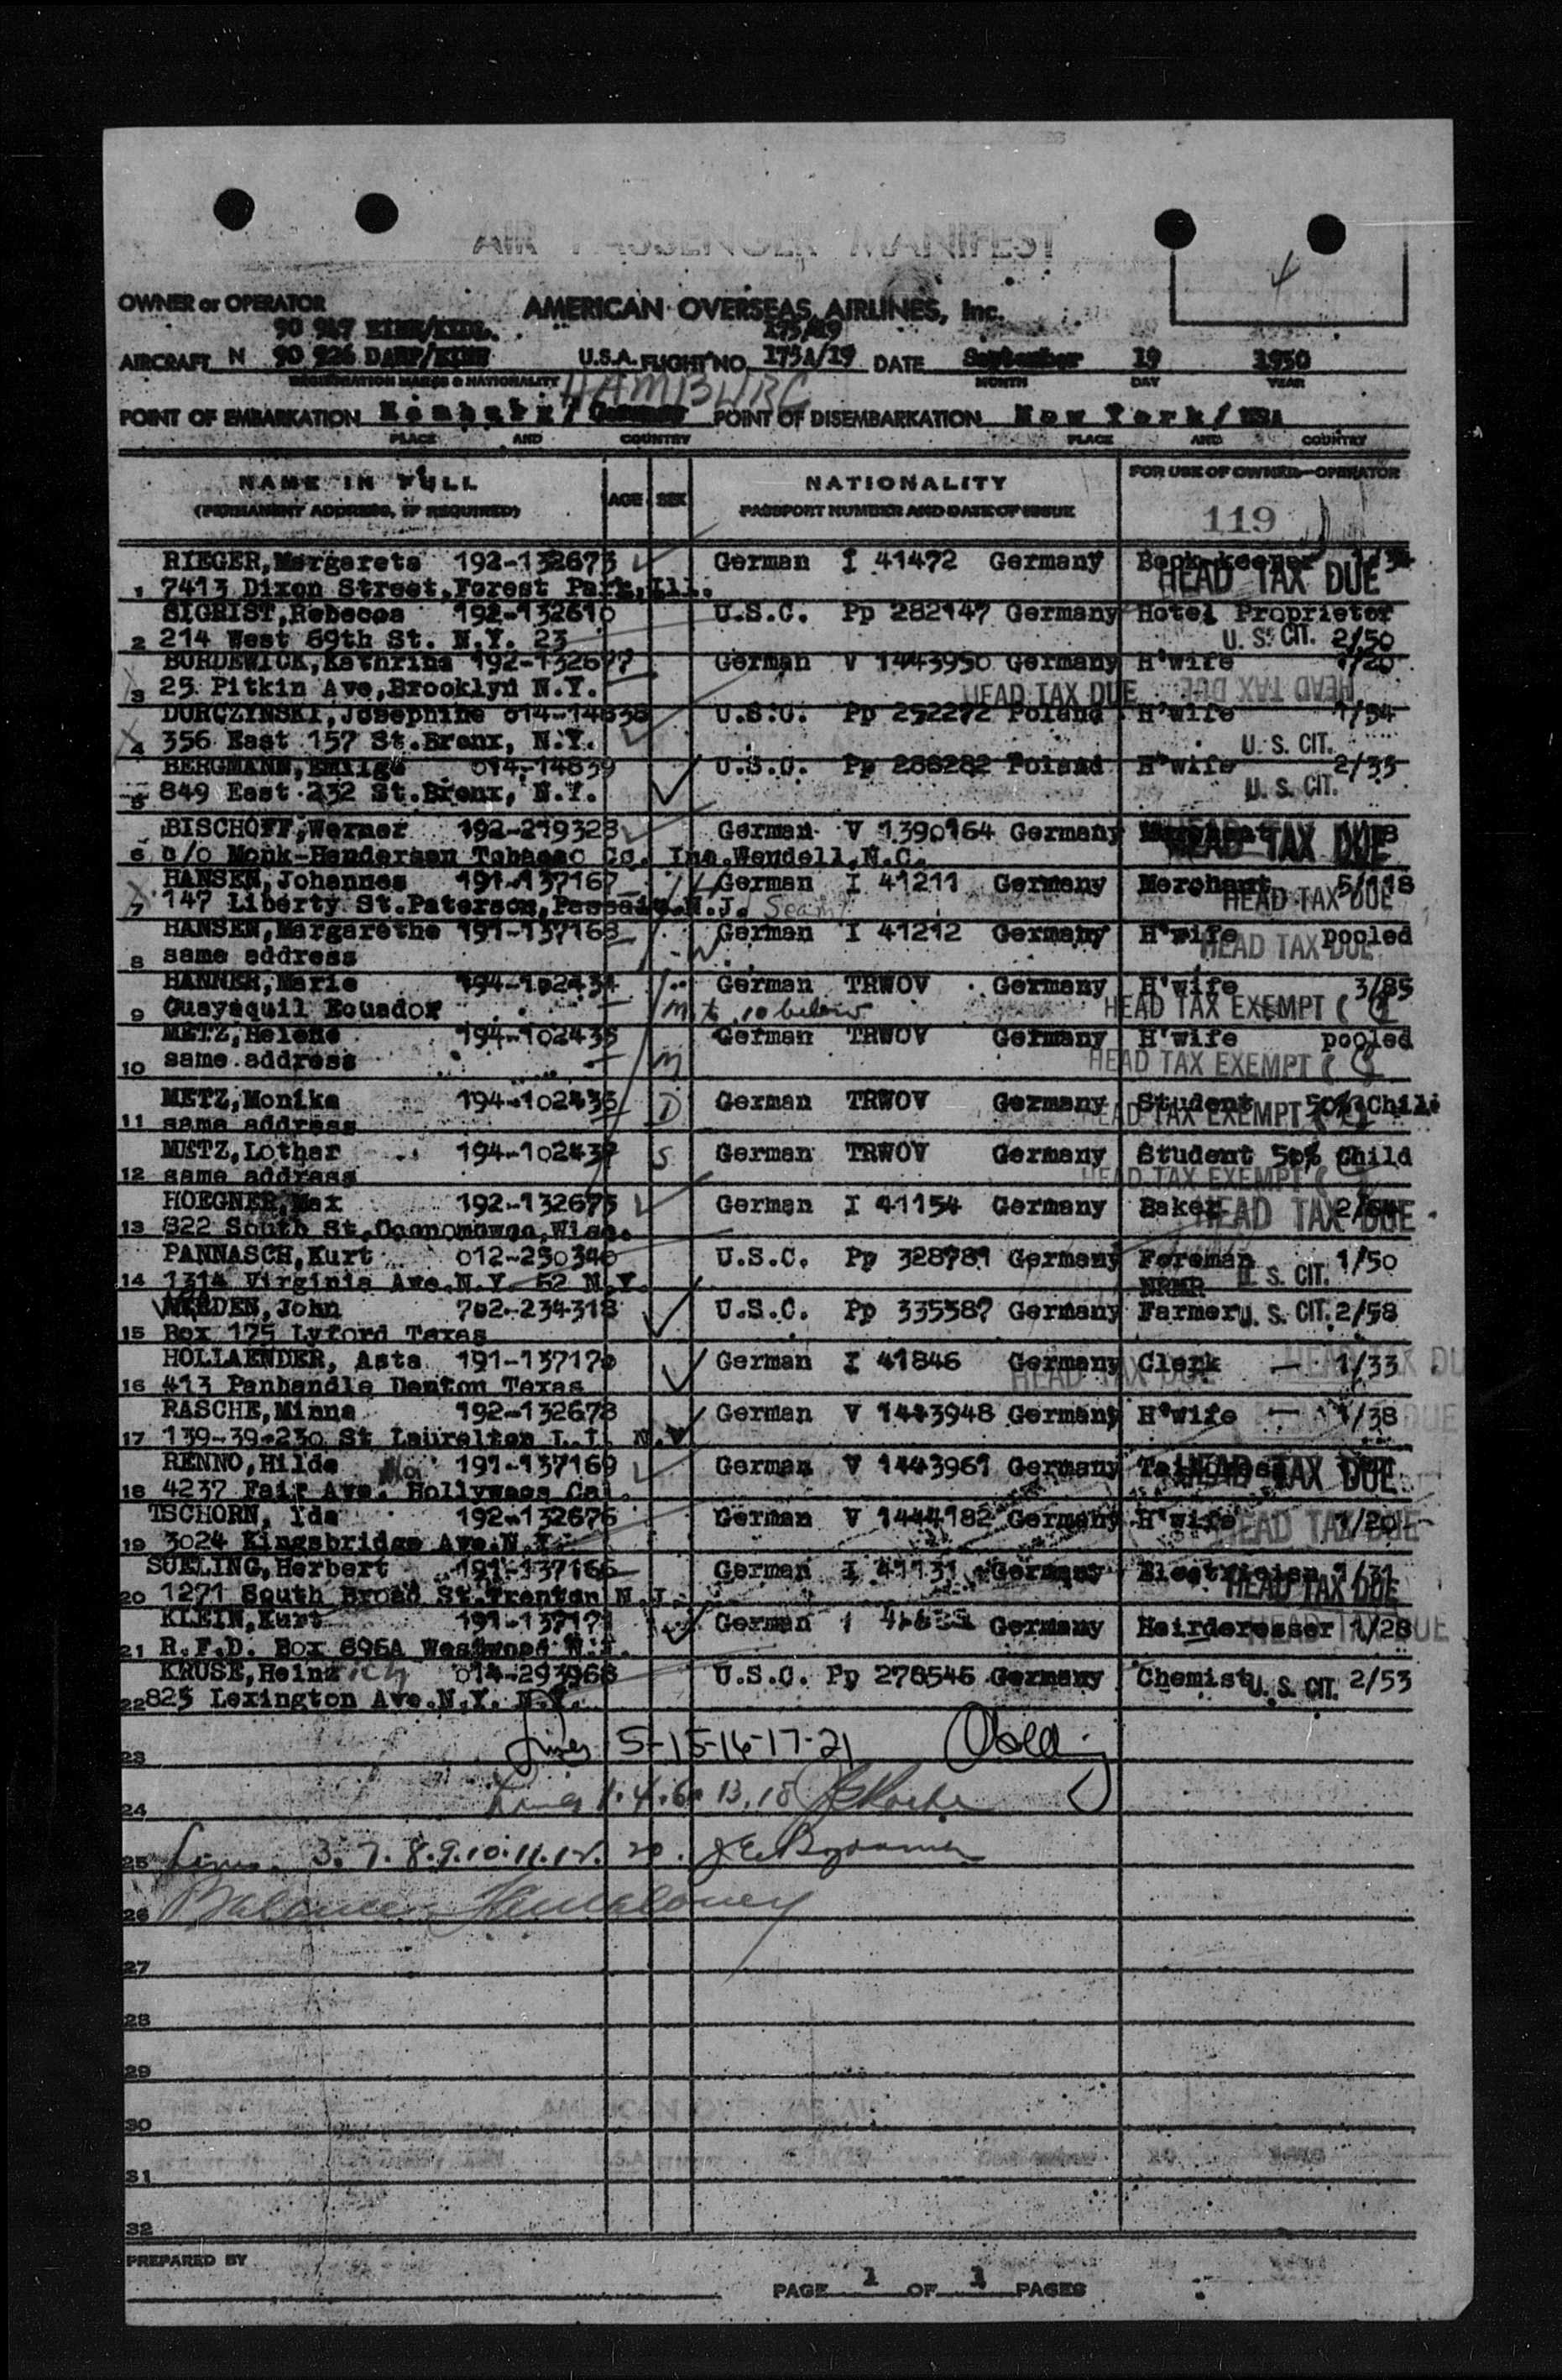 AIR PASSENGER MANIFEST
OWNER or OPERATOR AMERICAN OVERSEAS AIRLINES, Inc.
90 947 175/19
AIRCRAFT N 90 926 U.S.A. FLIGHT NO. 175A/19 DATE September 19 1950
REGISTRATION MARKS & NATIONALITY MONTH DAY YEAR
HAMBURG
POINT OF EMBARKATION Hamburg / Germany POINT OF DISEMBARKATION New York / USA
PLACE AND COUNTRY PLACE AND COUNTRY
NAME IN FULL AGE SEX NATIONALITY FOR USE OF OWNER-OPERATOR
(PERMANENT ADDRESS, IF REQUIRED) PASSPORT NUMBER AND DATE OF ISSUE 119
RIEGER, Margarete 192-132673 German I 41472 Germany Book-keeper 1/34
1 7413 Dixon Street, Forest Park, Ill. HEAD TAX DUE
SIGRIST, Rebecca 192-132610 U.S.C. Pp 282147 Germany Hotel Proprietor
2 214 West 69th St. N.Y. 23 U. S. CIT. 2/50
BURDEWICK, Kathrina 192-132677 German V 1443950 Germany H'wife 1/20
3 25 Pitkin Ave, Brooklyn N.Y. HEAD TAX DUE HEAD TAX DUE
DURCZYNSKI, Josephine 014-14838 U.S.C. Pp 252272 Poland H'wife 1/54
4 356 East 157 St. Bronx, N.Y. U. S. CIT.
BERGMANN, 014-14839 U.S.C. Pp 286282 Poland H'wife 2/33
5 849 East 232 St. Bronx, N.Y. U. S. CIT.
BISCHOFF, Werner 192-219328 German V 1390164 Germany
6 c/o Monk-Henderson Tobacco Co. Inc. Wendell, N.C. HEAD TAX DUE
HANSEN, Johannes 191-137167 German I 41211 Germany Merchant 5/118
7 147 Liberty St. Paterson, Passaic. N.J. HEAD TAX DUE
HANSEN, Margarethe 191-137168 German I 41212 Germany H'wife pooled
8 same address HEAD TAX DUE
HANNER, Marie 194-102434 German TRWOV Germany H'wife 3/85
9 Guayaquil Ecuador M to 10 below HEAD TAX EXEMPT
METZ, Helene 194-102435 German TRWOV Germany H'wife pooled
10 same address M HEAD TAX EXEMPT
METZ, Monika 194-102436 D German TRWOV Germany Student 50% Child
11 same address HEAD TAX EXEMPT
METZ, Lothar 194-102437 S German TRWOV Germany Student 50% Child
12 same address HEAD TAX EXEMPT
HOEGNER, Max 192-132675 German I 41154 Germany Baker 2/64
13 822 South St, Oconomowoc, Wisc. HEAD TAX DUE
PANNASCH, Kurt 012-230340 U.S.C. Pp 328781 Germany Foreman 1/50
14 1314 Virginia Ave. N.Y. 62 N.Y. U. S. CIT.
John 702-234318 U.S.C. Pp 335387 Germany Farmer U. S. CIT. 2/58
15 Box 175 Lyford Texas
HOLLAENDER, Asta 191-137170 German I 41846 Germany Clerk — 1/33
16 413 Panhandle Denton Texas HEAD TAX DUE HEAD TAX DUE
RASCHE, Minna 192-132678 German V 1443948 Germany H'wife — 1/38
17 139-39-230 St Laurelton L.I. N.Y. DUE
RENNO, Hilde 191-137169 German V 1443961 Germany
18 4237 Fair Ave. Hollywood Cal. HEAD TAX DUE
TSCHORN, Ida 192-132676 German V 1444182 Germany H'wife 1/20
19 3024 Kingsbridge Ave. N.Y. HEAD TAX DUE
SUELING, Herbert 191-137166 German I 41131 Germany Electrician 1/31
20 1271 South Broad St. Trenton N.J. HEAD TAX DUE
KLEIN, Kurt 191-137171 German I Germany Hairderesser 1/28
21 R.F.D. Box 696A Westwood N.J. HEAD TAX DUE
KRUSE, Heinrich 014-293968 U.S.C. Pp 278546 Germany Chemist U. S. CIT. 2/53
22 825 Lexington Ave. N.Y. N.Y.
23 Lines 5-15-16-17-21
24 Lines 1.4.6. 13.18
25 Lines 3.7.8.9.10.11.12. 20.
26 Balance
27
28
29
30
31
32
PREPARED BY
PAGE 1 OF 1 PAGES